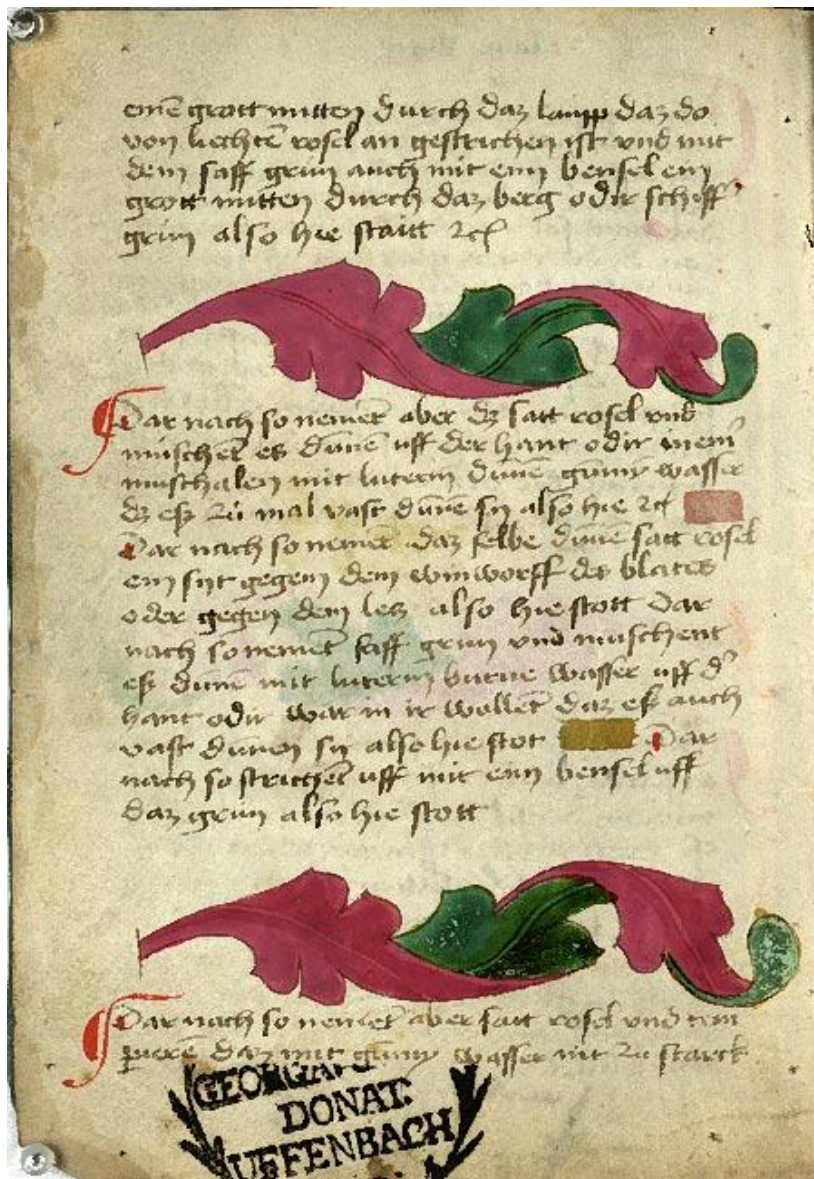 einē grott mitten durch daz laupp daz do
von liechtē rosel an gestrichen ist vnd mit
dem saff grun auch mit eim bensel ein
grott mitten durch daz berg odir schiff
grun also hie statt ⁊cͤ
Dar nach so nemēt aber dz satt rosel vnd
muschēt es dunē uff der hant odir in ein
muschalen mit luterm dunē gumy wasser
dz eß zu mal vast dunē sy also hie ⁊c
Dar nach so nemēt daz selbe dunē satt rosel
ein syt gegem dem winworff des blates
oder gegen dem letz also hie stott Dar
nach so nemēt saff grun vnd muschent
eß dunē mit luterm burne wasser uff d'
hant odir war in ir wollēt daz eß auch
vast dunen sy also hie stot Dar
nach so strichēt uff mit eim bensel uff
daz grun also hie stott
Dar nach so nemēt aber satt rosel vnd tem
perērē daz mit gumy wasser nit zu starck
DONAT.
UFFENBACH